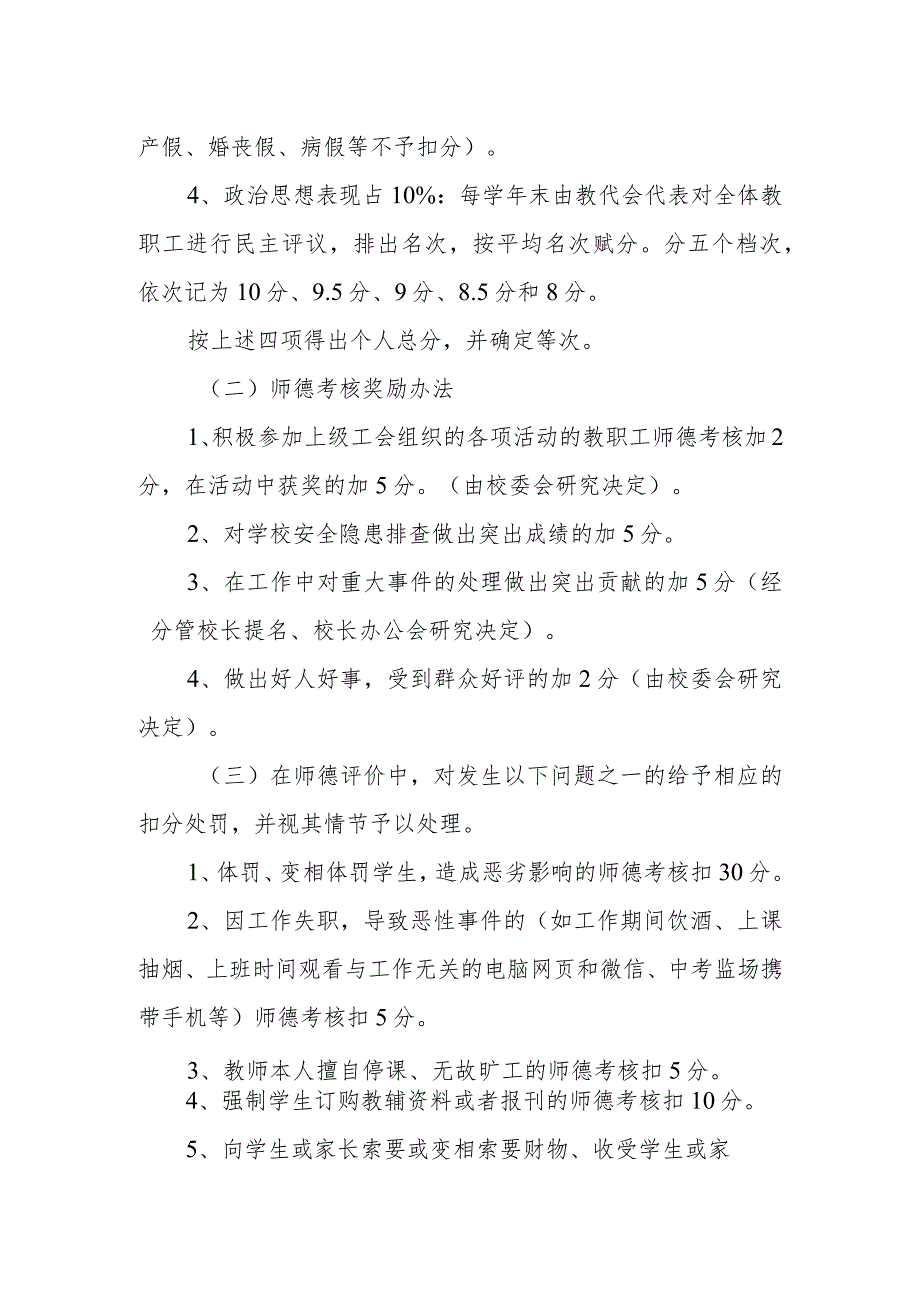 产假、婚丧假、病假等不予扣分）。
4、政治思想表现占10%：每学年末由教代会代表对全体教
职工进行民主评议，排出名次，按平均名次赋分。分五个档次，
依次记为10分、9.5分、9分、8.5分和8分。
按上述四项得出个人总分，并确定等次。
（二）师德考核奖励办法
1、积极参加上级工会组织的各项活动的教职工师德考核加2
分，在活动中获奖的加5分。（由校委会研究决定）。
2、对学校安全隐患排查做出突出成绩的加5分。
3、在工作中对重大事件的处理做出突出贡献的加5分（经
分管校长提名、校长办公会研究决定）。
4、做出好人好事，受到群众好评的加2分（由校委会研究
决定）。
（三）在师德评价中，对发生以下问题之一的给予相应的
扣分处罚，并视其情节予以处理。
1、体罚、变相体罚学生，造成恶劣影响的师德考核扣30分。
2、因工作失职，导致恶性事件的（如工作期间饮酒、上课
抽烟、上班时间观看与工作无关的电脑网页和微信、中考监场携
带手机等）师德考核扣5分。
3、教师本人擅自停课、无故旷工的师德考核扣5分。
4、强制学生订购教辅资料或者报刊的师德考核扣10分。
5、向学生或家长索要或变相索要财物、收受学生或家